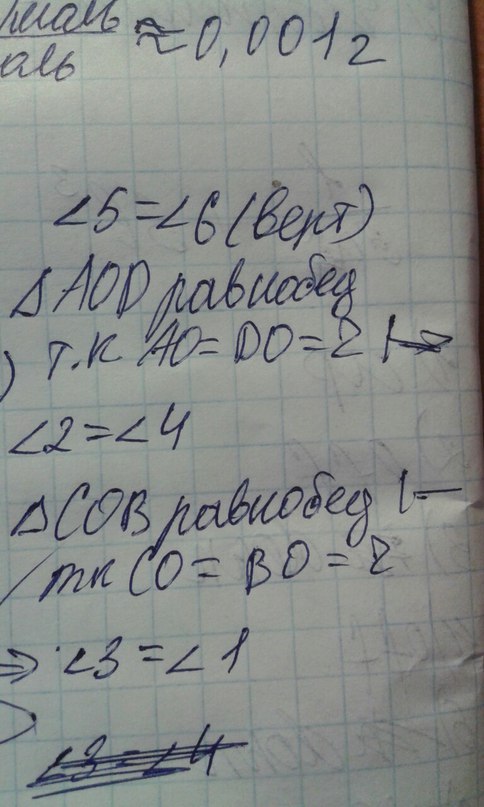 ≈0,001г
аль
∠5=∠6(верт)
△AOD равнобед
т.к AO=DO=r
∠2=∠4
△COB равнобед
тк CO=BO=r
⇒ ∠3=∠1
∠3=∠4